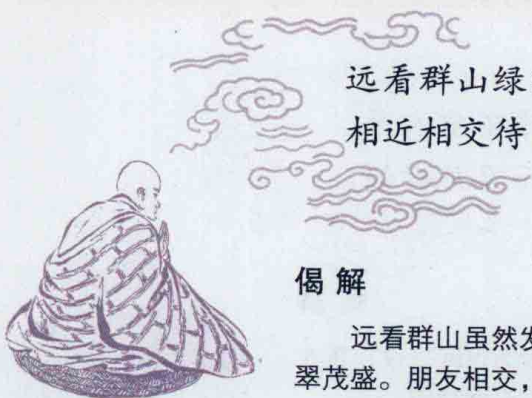 远看群山绿
相近相交待
偈解
远看群山虽然发
翠茂盛。朋友相交，